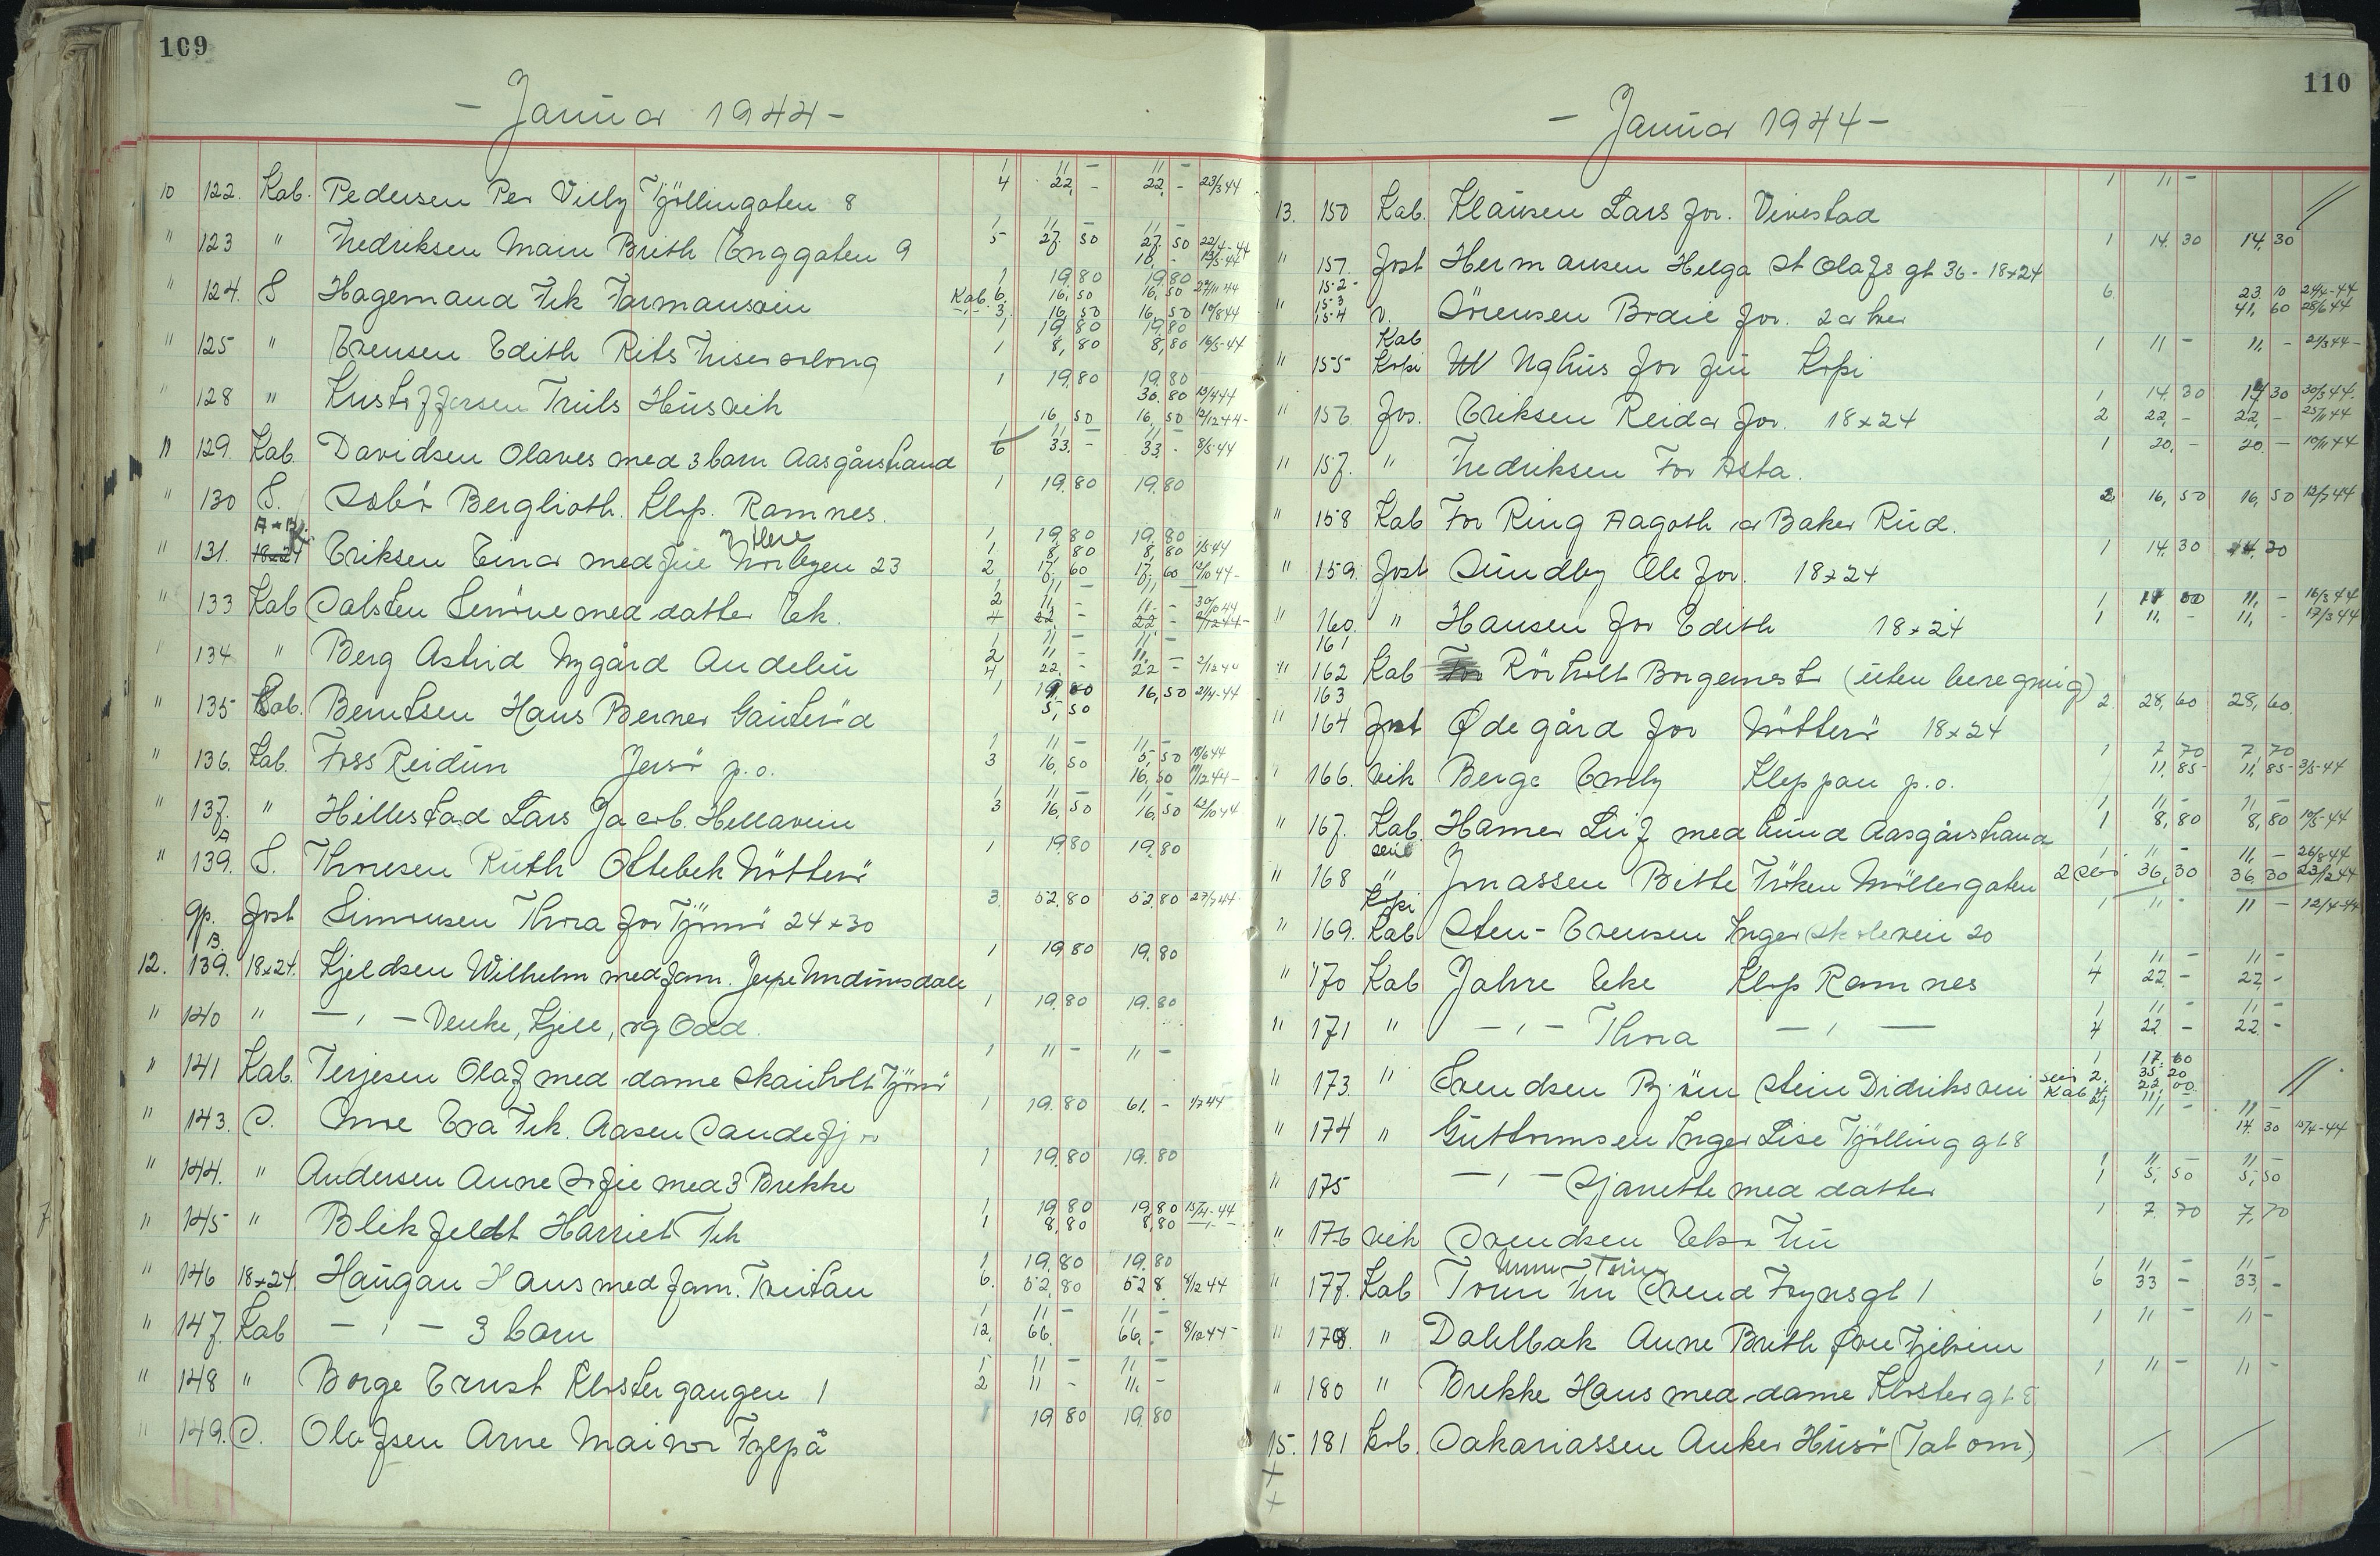 109
- Januar 1944 -
10 122. Kab. Pedersen Per Villy Tjøllingaten 8 1 11 - 11 -
4 22, - 22, - 23/3 44
" 123 " Fredriksen Main Brith Enggaten 9 1 11 - 11 -
5 27. 50 27. 50 22/4-44
" 124. S Hagemand Frk Farmansvein 1 19,80 19,80
Kab. 6. 16,50 16,50
3. 16,50 16,50 10/8 44
" 125 " Evensen Edith Rits Frisersalong 1 19,80 19,80
1 8,80 8,80 16/5-44
" 128 " Kristoffersen Truls Husvik 1 19,80 19,80
30,80 13/4 44
16,50 16,50 12/12 44-
" 129. Kab. Davidsen Olaves med 3 barn Aasgårstrand 1 11 - 11 -
6 33. - 33. - 8/5-44
" 130 S. Sæbö Berglioth. Klop. Ramnes. 1 19,80 19,80
" 131. 18x24 Eriksen Einar med frue Norbyen 23 1 19,80 19,80
1 8,80 8,80 1/3 44
2 17,60 17,60 12/10 44-
" 133 Kab Salsten Lenöve med datter Eek. 1 11 - 11 -
2 11 - 11. -
4 22 - 22 -
" 134 " Berg Astrid Nygård Andebu 1 11 - 11. -
2 11 - 11. -
4 22. - 22 - 2/12 44
" 135 Kab. Berntsen Hans Berner Gauterød 1 19,80 16,50 21/4-44
5,50
" 136. Kab. Foss Reidun Jersö p.o. 1 11 - 11 -
3 16,50 5,50 18/6 44
16,50 11/12 44-
" 137. " Hillestad Lars Jacob. Hellavein 1 11 - 11 -
3 16,50 16,50 12/10 44
" 139. A S. Thoresen Ruth Oltebek Nötterö 1 19,80 19,80
gp. Forst Simonsen Thora for Tjömö 24x30 3. 52,80 52,80 27/3 44
12. 139. B. 18x24. Kjeldsen Wilhelm med fam. Jerpe Undrumsdal 1 19,80 19,80
" 140 " - " - Venke, Kjell, og Odd. 1 19,80 19,80
" 141 Kab. Terjesen Olaf med dame Skauholt Tjömö 1 11 - 11 -
" 143. S. Moe Eva Frk. Aasen Sandefj 1 19,80 61. -
" 144. " Andersen Anne Sofie med 3 Brekke 1 19,80 19,80
" 145 " Blikfeldt Harriet Frk 1 19,80 19,80 15/4-44
1 8,80 8,80
" 146 18x24. Haugan Hans med fam. Treitan 1 19,80 19,80
6. 52,80 52 8. 8/12 44
" 147. Kab - " - 3 barn 1 11 - 11 -
12, 66, 66, - 8/12 44-
" 148 " Borge Ernst Klostergangen 1 1 11 - 11 -
2 11 - 11, -
" 149. S. Olafsen Arne Mainor Fylpå 1 19,80 19,80
110
- Januar 1944 -
13. 150 Kab. Klausen Lars for. Vivestad 1 11 -
" 151. Forst Hermansen Helga St Olafs gt 36 - 18x24 1 14,30 14,30
152 -
" 153
154 v. Sörensen Brdie for. 2 a hver 6 23,10 24/4-44
41,60 28/6 44
Kab
" 155 Kopi Nghus for fru Kopi 1 11 - 11, - 21/3 44-
" 156 Fos. Eriksen Reidar for. 18x24 1 14,30 14,30 30/3 44.
2 22, - 22, -
" 157. " Fredriksen For Asta. 1 20, - 20. -
" 158 Kab For Ring Aagoth a Baker Rud. 2 16,50 16,50
" 159. Forst Sundby Ole for. 18x24 1 14,30 14,30
" 160. " Hansen for Edith 18x24 1 11, - 16/3 44
1 11, - 11, - 17/3 44
161
" 162 Kab Rörholt Borgemester (uten beregning)
163
" 164 Forst Ødegård for Nötterö 18x24 2. 28,60 28,60.
" 166. vik Berge Emly Kleppan p.o. 1 7,70 7,70
11,85 11,85 3/5-44
" 167. Kab. Hamer Leif med hund Aasgårstrand 1 11 - 11, -
1 8,80 8,80 10/5-44
serie
" 168 " Jonassen Bitte Fröken Möllergaten 1 11 - 11, - 26/8 44
2 ser 36,30 36,30 23/12 44
Kopi
" 169. Kab Sten-Evensen Inger Skoleveien 20 1 11 - 11 - 12/4-44
" 170 Kab Jahre Eke Klop Ramnes 1 11 - 11 -
4 22 - 22, -
" 171 " - " - Thora - " - 1 11 - 11 -
4 22 - 22 -
" 173. " Svendsen Björn Stein Didriksvei 1 17,60
serie 2. 35,20
Kab 4 22,00
" 174 " Guttormsen Inger Lise Tjølling gt 8 11 - 11 -
14,30 15/4-44
" 175 - " - Sjanette med datter 1 11 - 11 -
1 5,50 5,50
" 176 vik Svendsen Elsa Fru 1 7,70 7,70
" 177. Kab Tonn Fru Svend Foynsgt 1 1 11 - 11 -
6 33 - 33, -
" 178. " Dahlbak Anne Brith Øvre Fjelvein 1 11 - 11 -
" 180 " Brekke Hans med dame Kloster gt 8 1 11 - 11 -
15. 181 Kab. Sakariassen Anker Husö (Tat om)